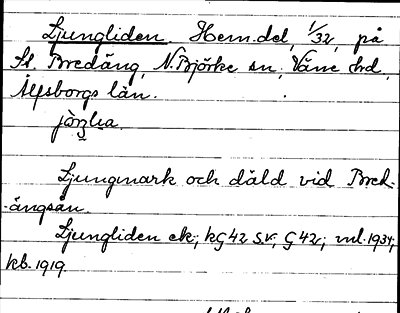 Ljungliden. Hem.del, 1/32, på
St Bredäng, N.Björke sn, Väne hd,
Älfsborgs län.
Ljungmark och däld vid Bred-
ängsån.
Ljungliden ek; kG42 S.V; G42; vul.1934;
kb.1919.